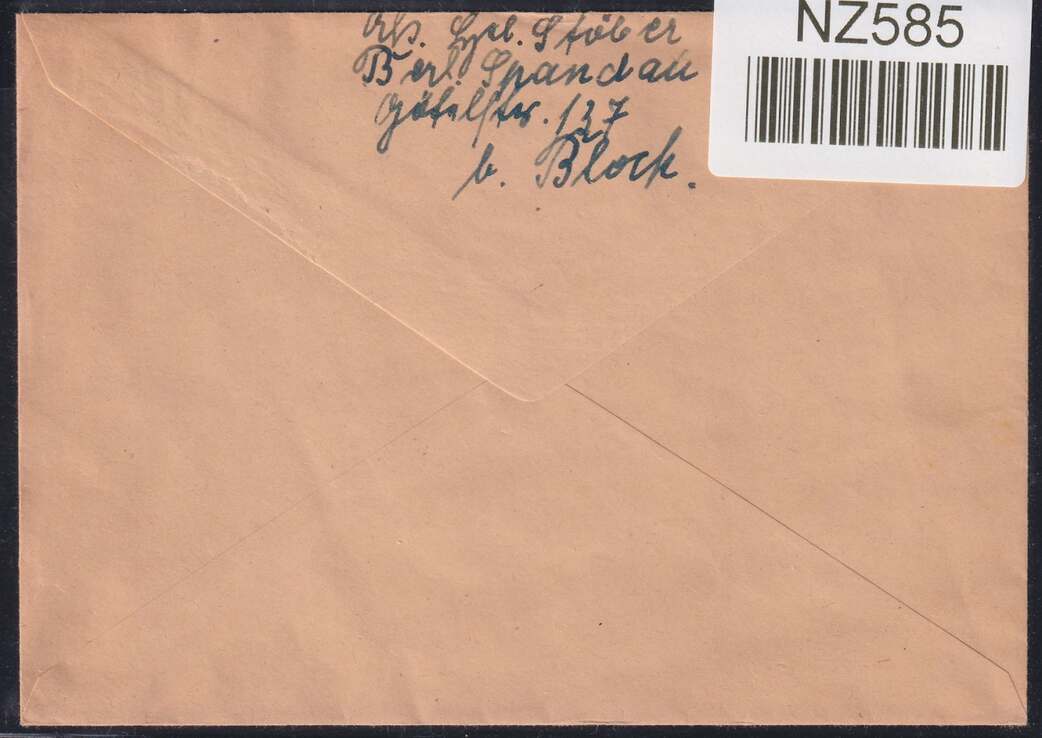 Abs. Stöber
Berl. Spandau
Götelstr. 137
b. Block.
NZ585